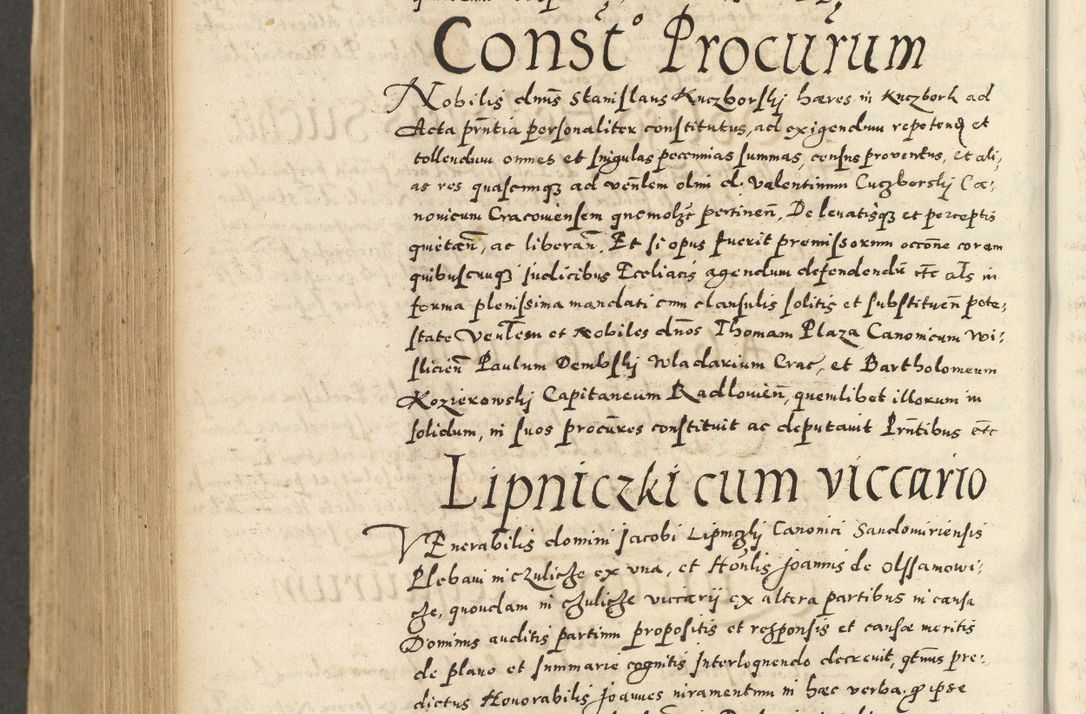 Const° Procurum
Nobilis dnus Stanislaus Kuczborskj hæres in Kuczbork ad
Acta prntia personaliter constitutus, ad exigendum repotend et
tollendum omnes et singulas pecunnias summas, census proventus, et ali,
as res quascunq3 ad venlem olim d. Valentinum Cuczborskj Ca=
nonicum Cracoviensem quomolzt pertinen, De levatisq3 et perceptis
quietan, ac liberan. Et si opus fuerit premissorum occone coram
quibuscunq3 Judicibus Eccliacis agendum defendendu etc als in
forma plenissima mandati cum clausulis solitis et substituen pote=
state Venlem et Nobiles dnos Thomam Plaza Canonicum Wi=
slicien Paulum Dembskj Wladarium Crac, et Bartholomeum
Kozierowskj Capitaneum Radlovien, quemlibet illorum in
solidum, in suos procures constituit ac deputavit Prntibus etc
Lipniczki cum viccario
VEnerabilis domini Jacobi Lipniczkj Canonici Sandomiriensis
Plebani in Czulicze ex una, et Honlis Joannis de Olssamowi=
cze, quondam in Czulicze viccarij ex altera partibus in causa
Dominus auditis partium propositis et responsis et causæ meritis
de plano et summarie cognitis Interloquendo decrevit, qtnus pre=
dictus Honorabilis Joannes iuramentum in hæc verba. q ipse